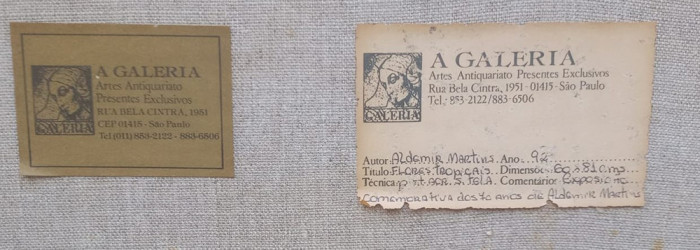 A GALERIA
Artes Antiquariato
Presentes Exclusivos
RUA BELA CINTRA, 1951
CEP 01415 - São Paulo
Tel (011) 853-2122 - 883-6506
GALERIA
A GALERIA
Artes Antiquariato Presentes Exclusivos
Rua Bela Cintra, 1951 - 01415 - São Paulo
Tel.: 853-2122/883-6506
GALERIA
Autor: Aldemir Martins Ano: 92
Título: FLORES TROPICAIS Dimensões: 60 x 81 cms
Técnica: ACR. S. TELA. Comentário: Exposição
comemorativa dos 70 anos de Aldemir Martins